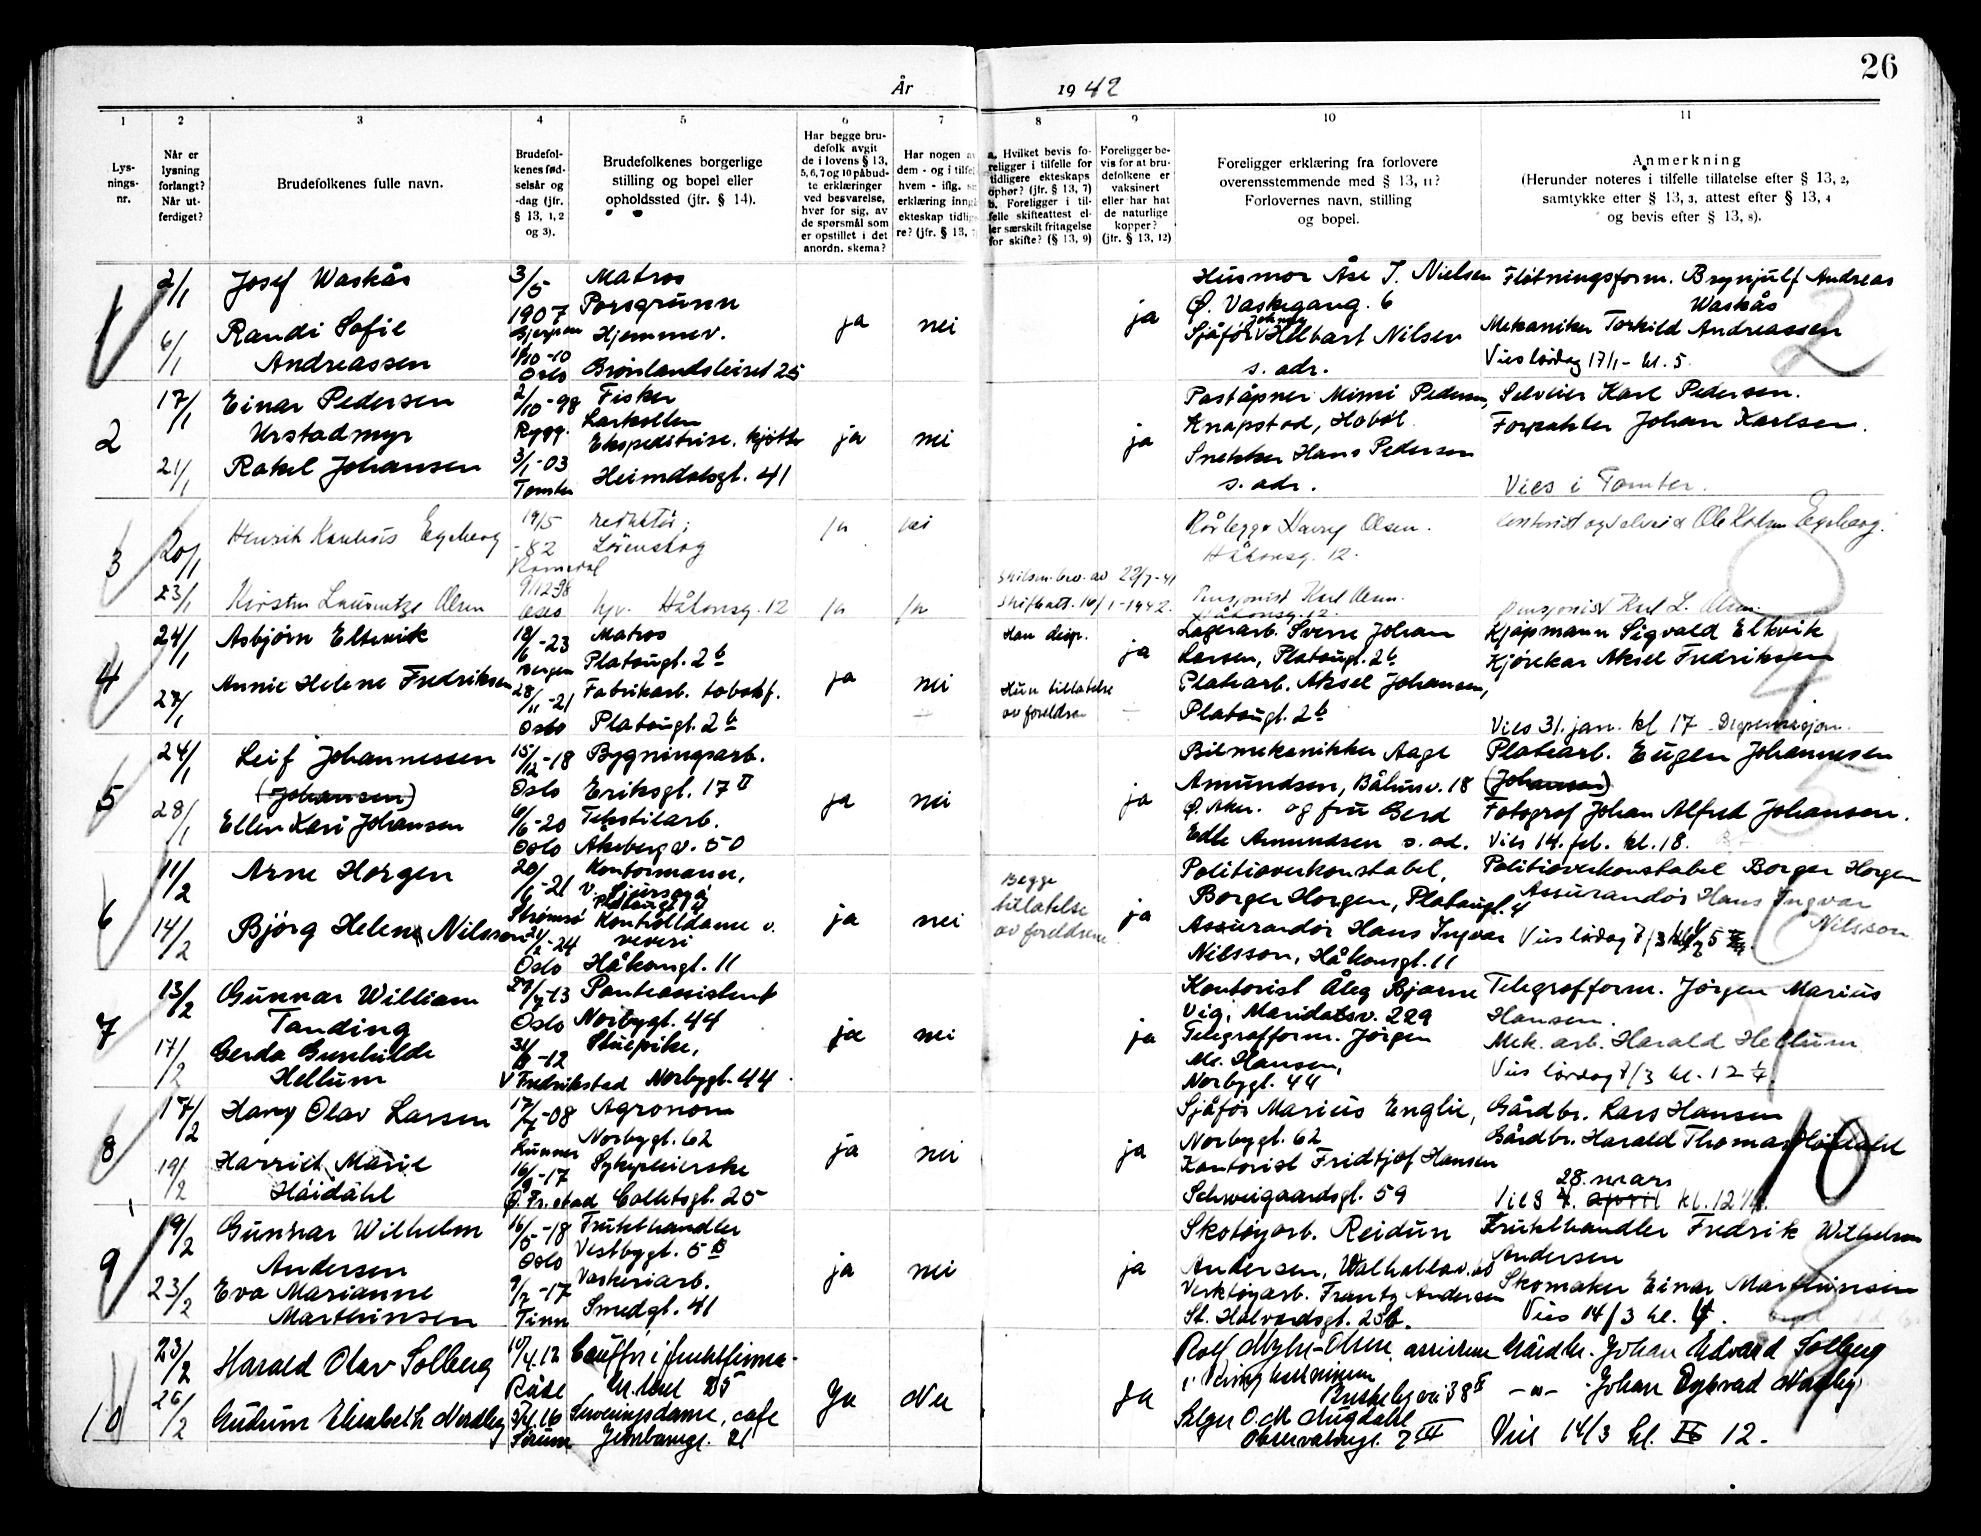 26
År 1942
1 2 3 4 5 6 7 8 9 10 11
Lys-
nings-
nr.
Når er
lysning
forlangt?
Når ut-
ferdiget?
Brudefolkenes fulle navn.
Brudefol-
kenes fød-
selsår og
-dag (jfr.
§ 13, 1, 2
og 3).
Brudefolkenes borgerlige
stilling og bopel eller
opholdssted (jfr. § 14).
Har begge bru-
defolk avgit
de i lovens § 13,
5, 6, 7 og 10 påbud-
te erklæringer
ved besvarelse,
hver for sig, av
de spørsmål som
er opstillet i det
anordn. skema?
Har nogen av
dem - og i tilfel
hvem - iflg.
erklæring inng
ekteskap tidlig
re? (jfr. § 13,
a. Hvilket bevis fo-
religger i tilfelle for
tidligere ekteskaps
ophør? (jfr. § 13, 7)
b. Foreligger i til-
felle skifteattest el-
ler særskilt fritagelse
for skifte? (§ 13, 9)
Foreligger be-
vis for at bru-
defolkene er
vaksinert
eller har hat
de naturlige
kopper?
(jfr. § 13, 12)
Foreligger erklæring fra forlovere
overensstemmende med § 13, 11?
Forlovernes navn, stilling
og bopel.
Anmerkning
(Herunder noteres i tilfelle tillatelse efter § 13, 2,
samtykke efter § 13, 3, attest efter § 13, 4
og bevis efter § 13, 8).
1
2/1
6/1
Josef Waskås
Randi Sofie
Andreassen
3/5
1907
Gjerpen
1/10-10
Oslo
Matros
Porsgrunn
Hjemmev.
Brønlandsleiret 25
ja
nei
ja
Husmor Åse J. Nielsen
Ø. Vaskegang. 6
Sjåfør Johan Helbart Nilsen
s. adr.
Fløtningsform. Brynjulf Andreas
Waskås
Mekaniker Torkild Andreassen
Vies lørdag 17/1 - kl. 5.
2
2
17/1
21/1
Einar Pedersen
Urstadmyr
Rakel Johansen
2/10-98
Rygg.
3/1-03
Tomter
Fisker
Larkollen
Ekspeditrise, kjøttf
Heimdalsgt. 41
ja
nei
ja
Poståpner Mimi Pedersen,
Knapstad, Hobøl
Snekker Hans Pedersen
s. adr.
Selveier Karl Pedersen.
Forpakter Johan Karlsen.
Vies i Tomter.
3
20/1
23/1
Henrik Egeberg
Kirsten Laurentze Olsen
19/5
-82
Romedal
9/12-98
Oslo
redaktør,
Lørenskog
hjv. Håkonsg. 12
ja
nei
ja
ja
Skilsm.bev. av 22/7-41
Skifteatt. 16/1-1942.
Rørlegger Harry Olsen.
Håkonsg. 12.
Pensjonist Karl Olsen.
Håkonsg. 12
Egeberg.
Pensjonist Karl L. Olsen.
4
24/1
27/1
Asbjørn Eltevik
Annie Helene Fredriksen
18/6-23
Bergen
28/11-21
Oslo
Matros
Platougt. 2b
Fabrikarb. tobakf.
Platougt. 2b
ja
nei
Han disp.
Hun tillatelse
av foreldre
ja
Lagerarb. Sverre Johan
Larsen, Platougt. 2b
Platearb. Aksel Johansen,
Platougt. 2b
Kjøpmann Sigvald Eltevik
Kjørekar Aksel Fredriksen
Vies 31. jan. kl 17 Dispensasjon.
5
24/1
28/1
Leif Johannessen
(Johansen)
Ellen Kari Johansen
15/12-18
Oslo
6/6-20
Oslo
Bygningsarb.
Eriksgt. 17 II
Tekstilarb.
Åkebergv. 50
ja
nei
ja
Bilmekanikker Aage
Amundsen, Båhusv. 18
Ø. Aker. og fru Gerd
Edle Amundsen s. ad.
Platearb. Eugen Johannesen
(Johansen)
Fotograf Johan Alfred Johansen.
Vies 14. feb. kl. 18.
6
11/2
14/2
Arne Horgen
Bjørg Helene Nilsson
20/1-21
Strømsø
21/2-24
Oslo
Kontormann,
Platougt. 4
Kontrolldame v.
veveri
Håkongt. 11
ja
nei
Begge
tillatelse
av foreldrene
ja
Politioverkonstabel,
Borger Horgen, Platougt. 4
Assurandør Hans Ingvar
Nilsson, Håkonsgt. 11
Politioverkonstabel Borger Horgen
Assurandør Hans Ingvar
Nilsson
Vies lørdag 7/3 kl.
7
13/2
17/2
Gunnar William
Tanding
Gerda Gunhilde
Hellum
Oslo
-12
v Fredrikstad
Panteassistent
Norbygt. 44
Stuepike,
Norbygt. 44
ja
nei
ja
Kontorist Åleg Bjarne
Vig, Maridalsv. 229
Telegrafform. Jørgen
M. Hansen,
Norbygt. 44
Telegrafform. Jørgen Marius
Hansen.
Mek. arb. Harald Hellum
Vies lørdag 7/3 kl. 12 1/4.
8
17/2
19/2
Harry Olav Larsen
Harriet Marie
Høidahl
17/7-08
Lunner
16/9-17
Ø. Fr.stad
Agronom
Norbygt. 62
Sykepleierske
Colletsgt. 25
ja
nei
ja
Sjåfør Marius Englie,
Norbygt. 62
Kontorist Fridtjof Hansen
Schweigaardsgt. 59
Gårdbr. Lars Hansen
Gårdbr. Harald Thomas Høidahl
28. mars
Vies 4. april kl. 12 1/4.
10
9
19/2
23/2
Gunnar Wilhelm
Andersen
Eva Marianne
Marthinsen
16/5-18
Oslo
9/2-17
Tinn
Frukthandler
Vestbygt. 5 B
Vaskeriarb.
Smedgt. 41
ja
nei
ja
Skotøyarb. Reidun
Andersen, Walhallav.
Verktøyarb. Frantz Andersen
St. Halvardsgt. 23b.
Frukthandler Fredrik Wilhelm
Andersen
Skomaker Einar Marthinsen
Vies 14/3 kl.
10
23/2
26/2
Harald Olav Solberg
Gudrun Elisabeth Nordby
10/4.12
Råde
Sørum
i fruktfirma.
Serveringsdame, cafe
Jernbanegt. 21
Ja
Nei
Ja
Rolf
38 II
Selger O. M. Mugdahl
Observatoriegt. 2 III
Gårdbr. Johan Edvard Solberg
-"- Johan Nordby
Vies 14/3 kl. 12.